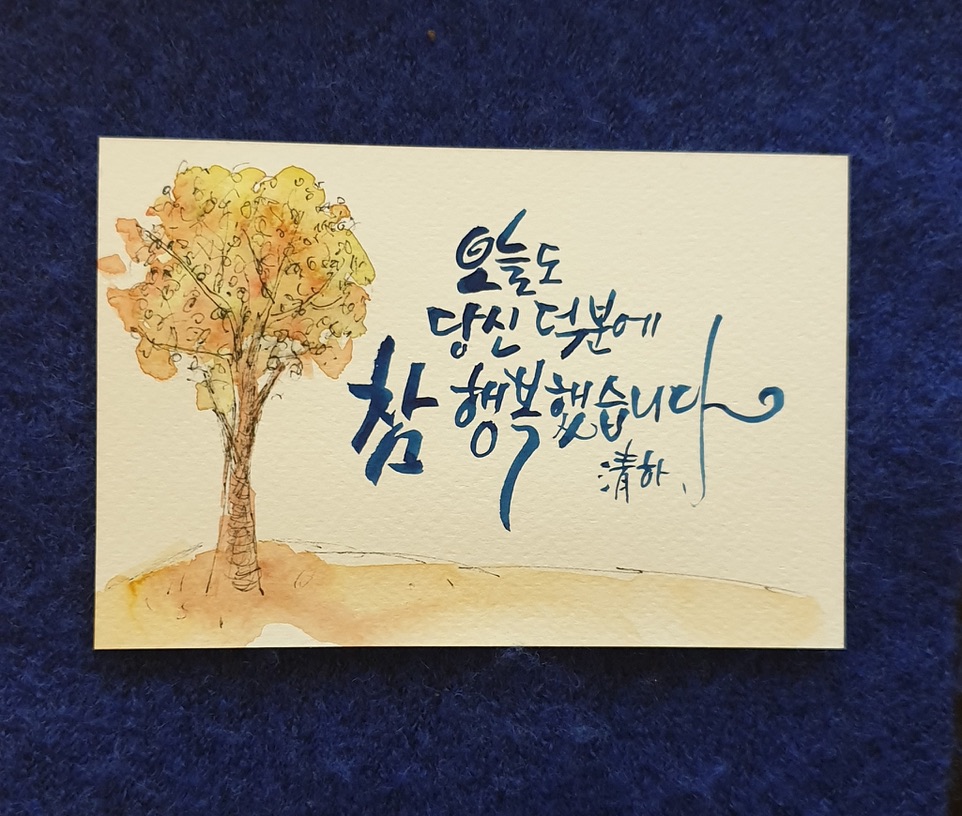 오늘도
당신 덕분에
참 행복했습니다
清하